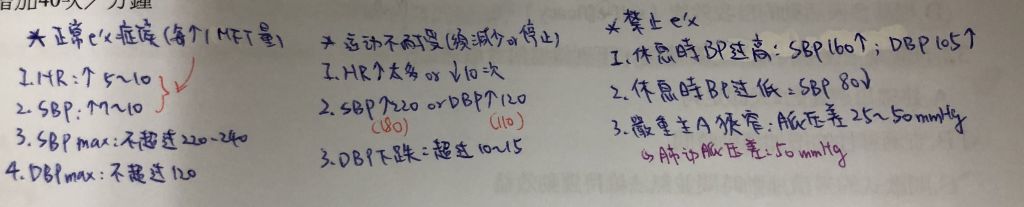 增加40次／分鐘
* 正常e'x症候(每↑1 MET量)
1. HR:↑ 5~10
2. SBP:↑7~10
3. SBP max:不超过220-240
4. DBP max:不超过120
* 运动不耐受(須減少or停止)
1. HR↑太多 or ↓10次
2. SBP↑220 or DBP↑120
(180) (110)
3. DBP下跌=超过10~15
* 禁止e'x
1. 休息時BP过高:SBP160↑;DBP105↑
2. 休息時BP过低=SBP 80↓
3. 嚴重主A狹窄:A瓣压差25~50mmHg
↳肺动瓣压差:50mmHg